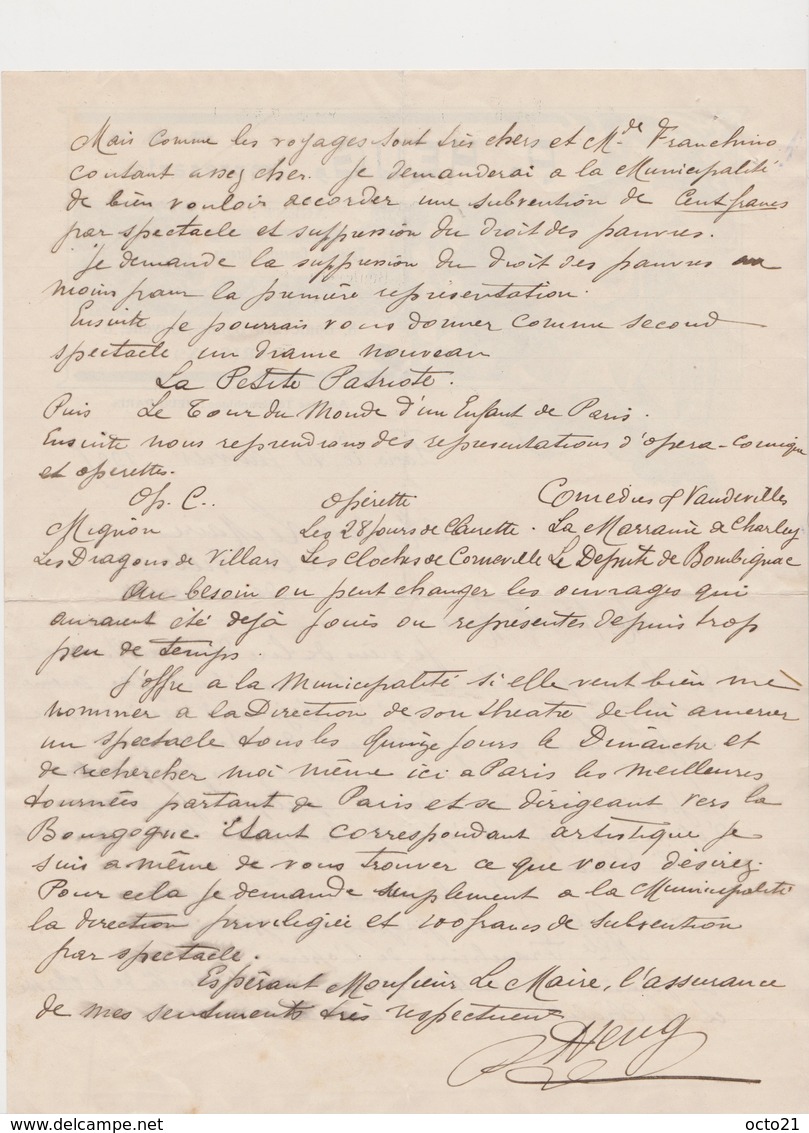 Mais comme les voyages sont très chers et M.de Franchino
coutant assez cher. Je demanderai a la Municipalité
de bien vouloir accorder une subvention de Cent francs
par spectacle et suppression du droit des pauvres.
Je demande la suppression du droit des pauvres au
moins pour la première représentation.
Ensuite je pourrais vous donner comme second
spectacle un drame nouveau
La Petite Patriote.
Puis Le Tour du Monde d'un Enfant de Paris.
Ensuite nous reprendrons des representations d'opera-comique
et operettes.
Op. C.. Opérette Comedies & Vaudevilles
Mignon Les 28 Jours de Clairette. La Marraine de Charley
Les Dragons de Villars Les Cloches de Corneville Le Député de Bombignac
Au besoin on peut changer les ouvrages qui
auraient été dejà joués ou représentes depuis trop
peu de temps.
J'offre a la Municipalité si elle veut bien me
nommer a la Direction de son theatre de lui amener
un spectacle tous les quinze jours le Dimanche et
de rechercher moi même ici a Paris les meilleures
tournées partant de Paris et se dirigeant vers la
Bourgogne. Etant correspondant artistique je
suis a même de vous trouver ce que vous désirez.
Pour cela je demande simplement a la Municipalité
la direction privilégiée et 100 francs de subvention
par spectacle.
Espérant Monsieur Le Maire, l'assurance
de mes sentiments très respectueux
octo21